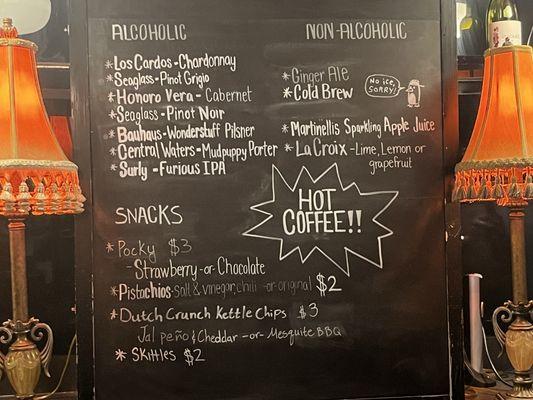 ALCOHOLIC
* Los Cardos - Chardonnay
* Seaglass - Pinot Grigio
* Honoro Vera - Cabernet
* Seaglass - Pinot Noir
* Bauhaus - Wonderstuff Pilsner
* Central Waters - Mudpuppy Porter
* Surly - Furious IPA
NON-ALCOHOLIC
* Ginger Ale
* Cold Brew
No ice, SORRY!
* Martinellis Sparkling Apple Juice
* La Croix - Lime, Lemon or
grapefruit
HOT
COFFEE!!
SNACKS
* Pocky $3
- Strawberry -or- Chocolate
* Pistachios - salt & vinegar, chili -or- original $2
* Dutch Crunch Kettle Chips $3
Jalpeño & Cheddar -or- Mesquite BBQ
* Skittles $2